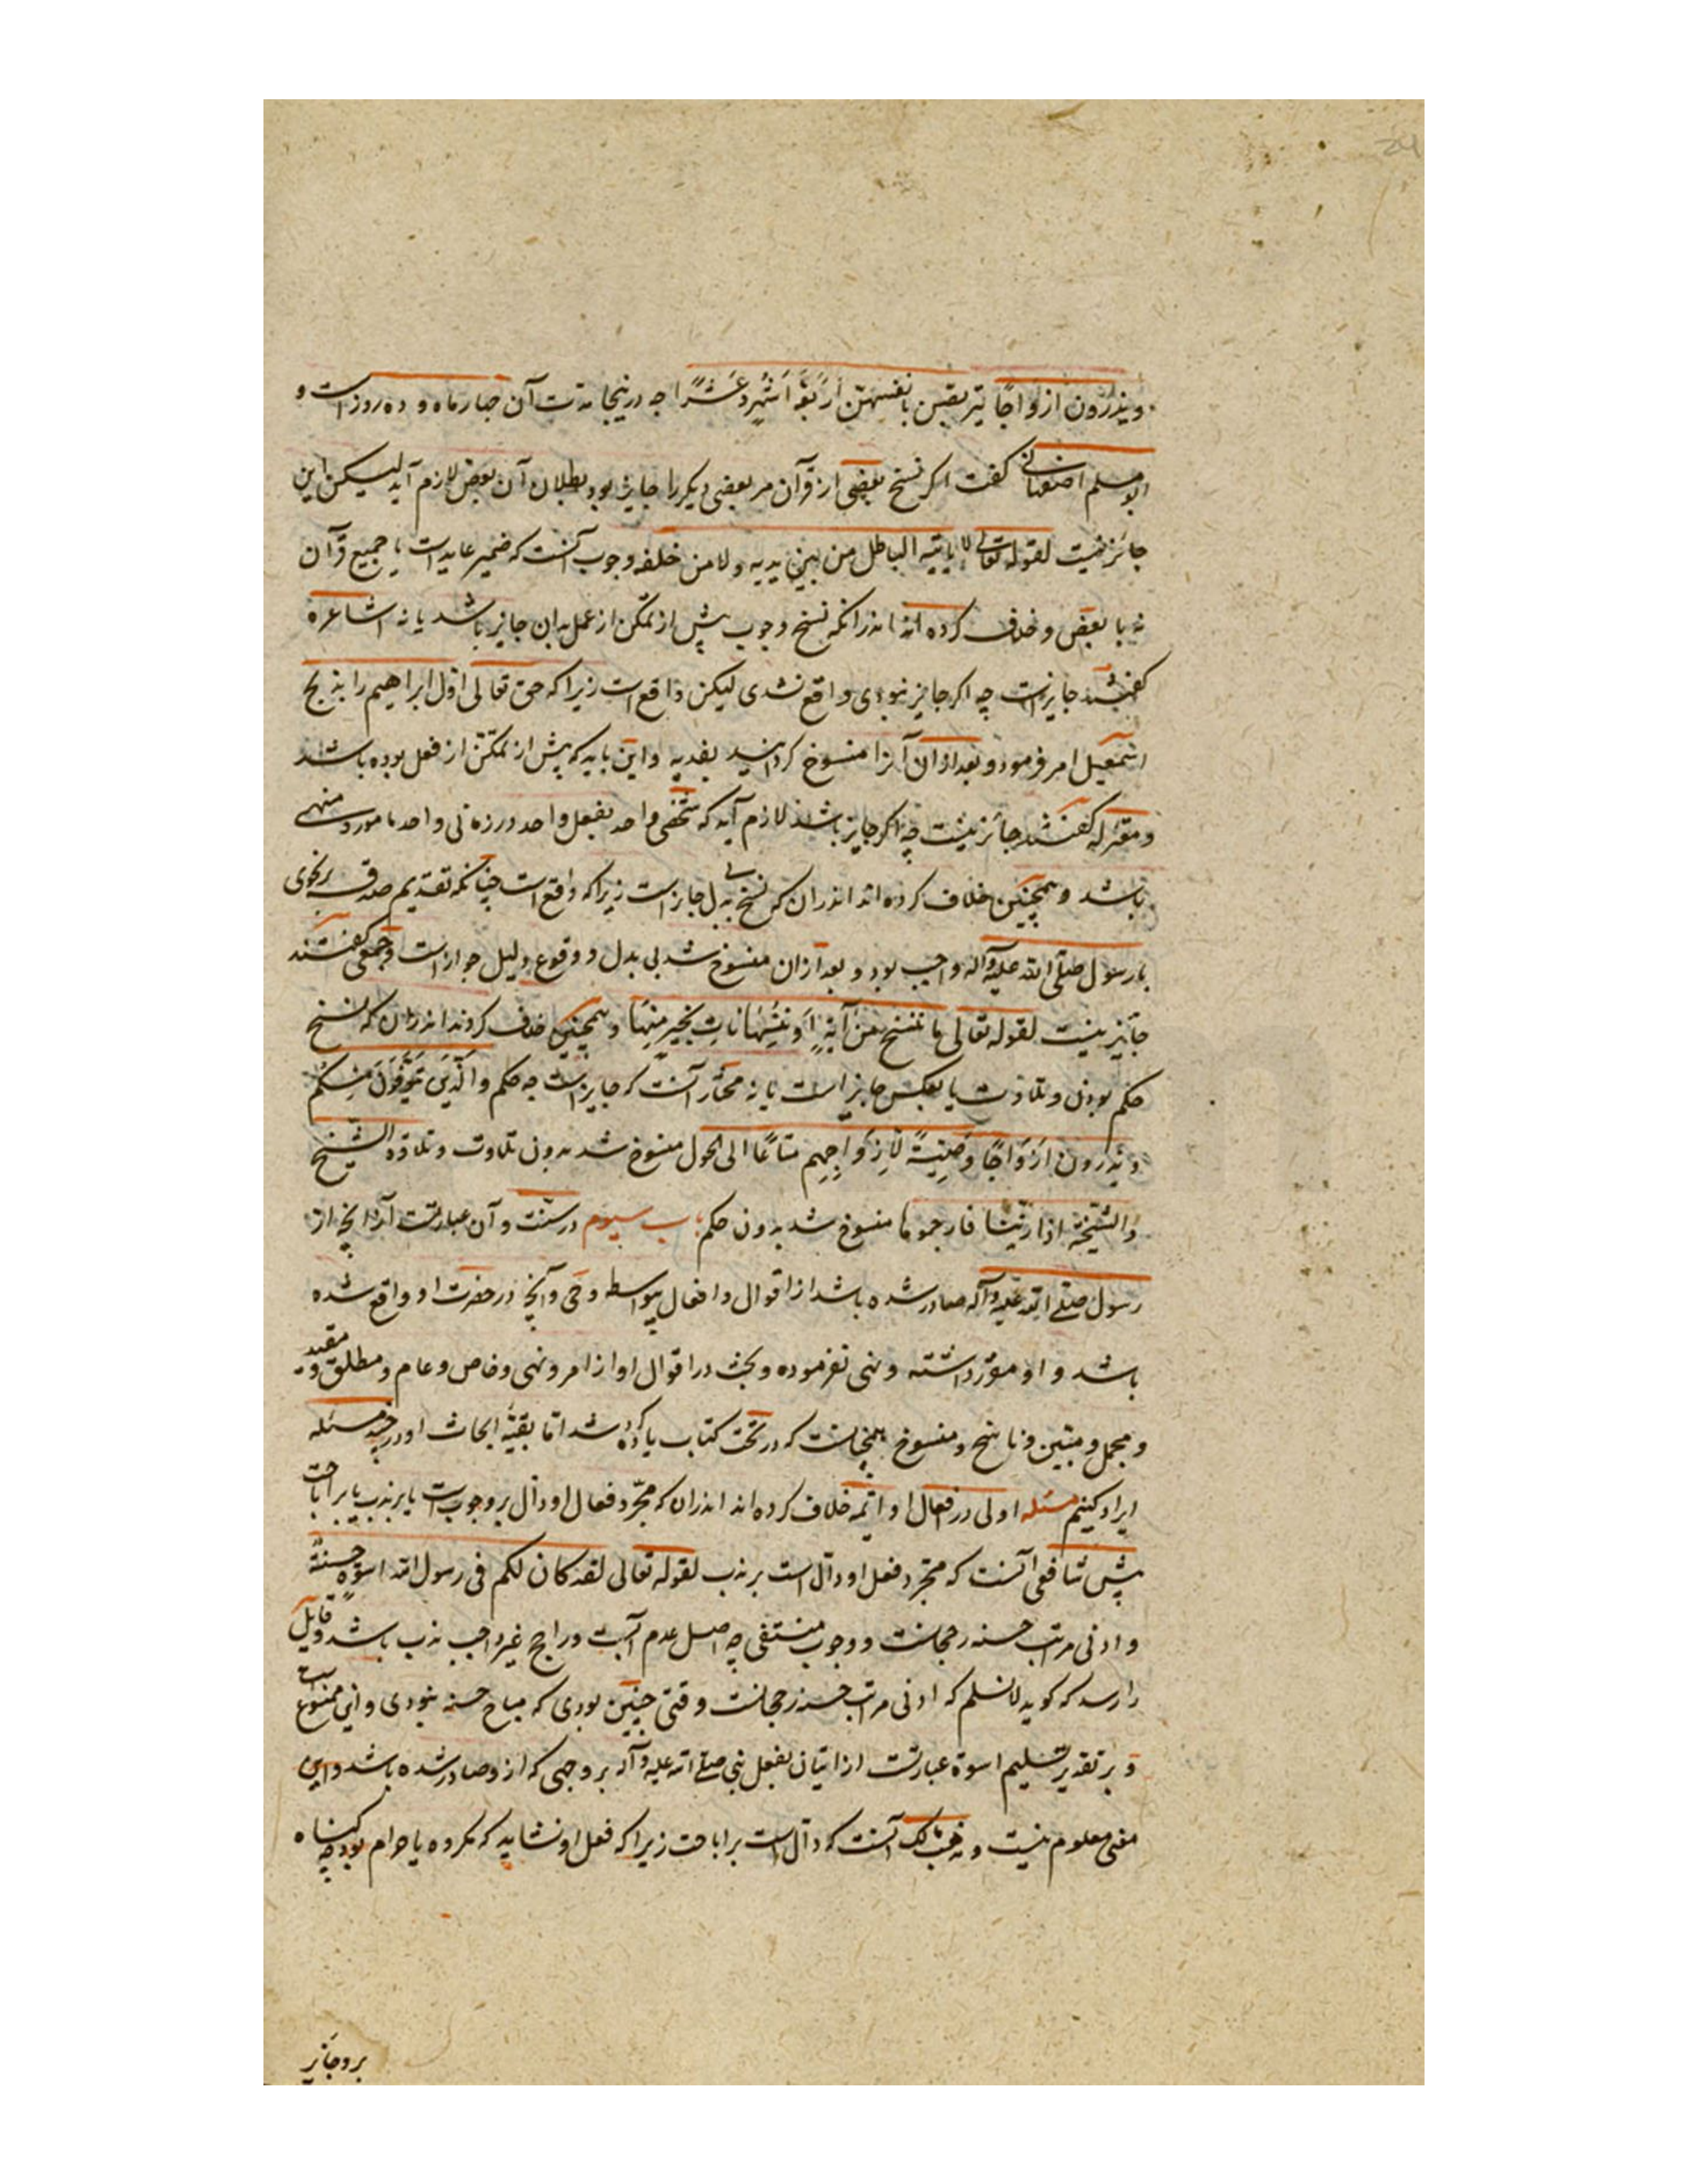 ویذرون ازواجًا یتربصن بانفسهنّ اَربَعَةَ اَشْهُرٍ وَعَشْرًا چه درینجا مدت آن چهار ماه و ده روز است و
ابو مسلم اصفهانی گفت اگر نسخ بعضی از قرآن مر بعضی دیگر را جایز بود بطلان آن بعض لازم آید لیکن این
جائز نیست لقوله تعالی لا یاتیه الباطل من بین یدیه ولا من خلفه وجوب آنست که ضمیر عایدست با جمیع قرآن
نه با بعض و خلاف کرده اند اندرانکه نسخ وجوب پیش از تمکن از عمل بدان جایز باشد یا نه اشاعره
گفتند جایزست چه اگر جایز نبودی واقع نشدی لیکن واقع است زیرا که حق تعالی اوّل ابراهیم را بذبح
اسمعیل امر فرمود و بعد ازان آنرا منسوخ گردانید بفدیه و این باید که پیش از تمکّن از فعل بوده باشد
و معتزله گفتند جائز نیست چه اگر جایز باشد لازم آید که شخصی واحد بفعل واحد در زمانی واحد مامور و منهی
باشد و همچنین خلاف کرده اند اندران که نسخ بی بدل جایز است زیرا که واقع است چنانکه تقدیم صدقه بر نجوی
با رسول صلّی الله علیه وآله واجب بود و بعد ازان منسوخ شد بی بدل و وقوع دلیل جواز است و جمعی گفتند
جایز نیست لقوله تعالی ما ننسخ من آیةٍ اَو ننسها نات بخیر منها و همچنین خلاف کردند اندران که نسخ
حکم بدون تلاوت یا بعکس جایز است یا نه مختار آنست که جایز است چه حکم والّذین یتوفّون منکم
و یذرون ازواجًا وصیّةً لازواجهم متاعًا الی الحول منسوخ شد بدون تلاوت و تلاوة الشیخ
والشیخة اذا زنیا فارجموهما منسوخ شد بدون حکم باب سیوم در سنّت و آن عبارتست از آنچه از
رسول صلّی الله علیه وآله صادر شده باشد از اقوال و افعال بیواسطه وحی و آنچه در حضرت او واقع شده
باشد و او مقرّر داشته و نهی نفرموده و بحث در اقوال او از امر و نهی و خاص و عام و مطلق و مقید
و مجمل و مبین و ناسخ و منسوخ همچنانست که در بحث کتاب یاد کرده شد امّا بقیّهٔ ابحاث او در چند مسئله
ایراد کنیم مسئله اولی در افعال او ائمه خلاف کرده اند اندران که مجّرد فعال او دالّ بر وجوب است یا بر ندب یا بر اباحت
پیش شافعی آنست که مجرّد فعل او دالّ است بر ندب لقوله تعالی لقد کان لکم فی رسول الله اسوةٌ حسنةٌ
و ادنی مراتب حسنه رجحانست و وجوب منتفی چه اصل عدم آنست و راجح غیر واجب ندب باشد و قایل
را رسد که گوید لا نسلم که ادنی مراتب حسنه رجحانست وقتی چنین بودی که مباح حسنه نبودی و این ممنوع است
و بر تقدیر تسلیم اسوة عبارتست از اتیان بفعل نبی صلّی الله علیه وآله بر وجهی که از و صادر شده باشد و این
معنی معلوم نیست و مذهب مالک آنست که دالّ است بر اباحت زیرا که فعل او نشاید که مکروه یا حرام بود چه گناه
برو جایز